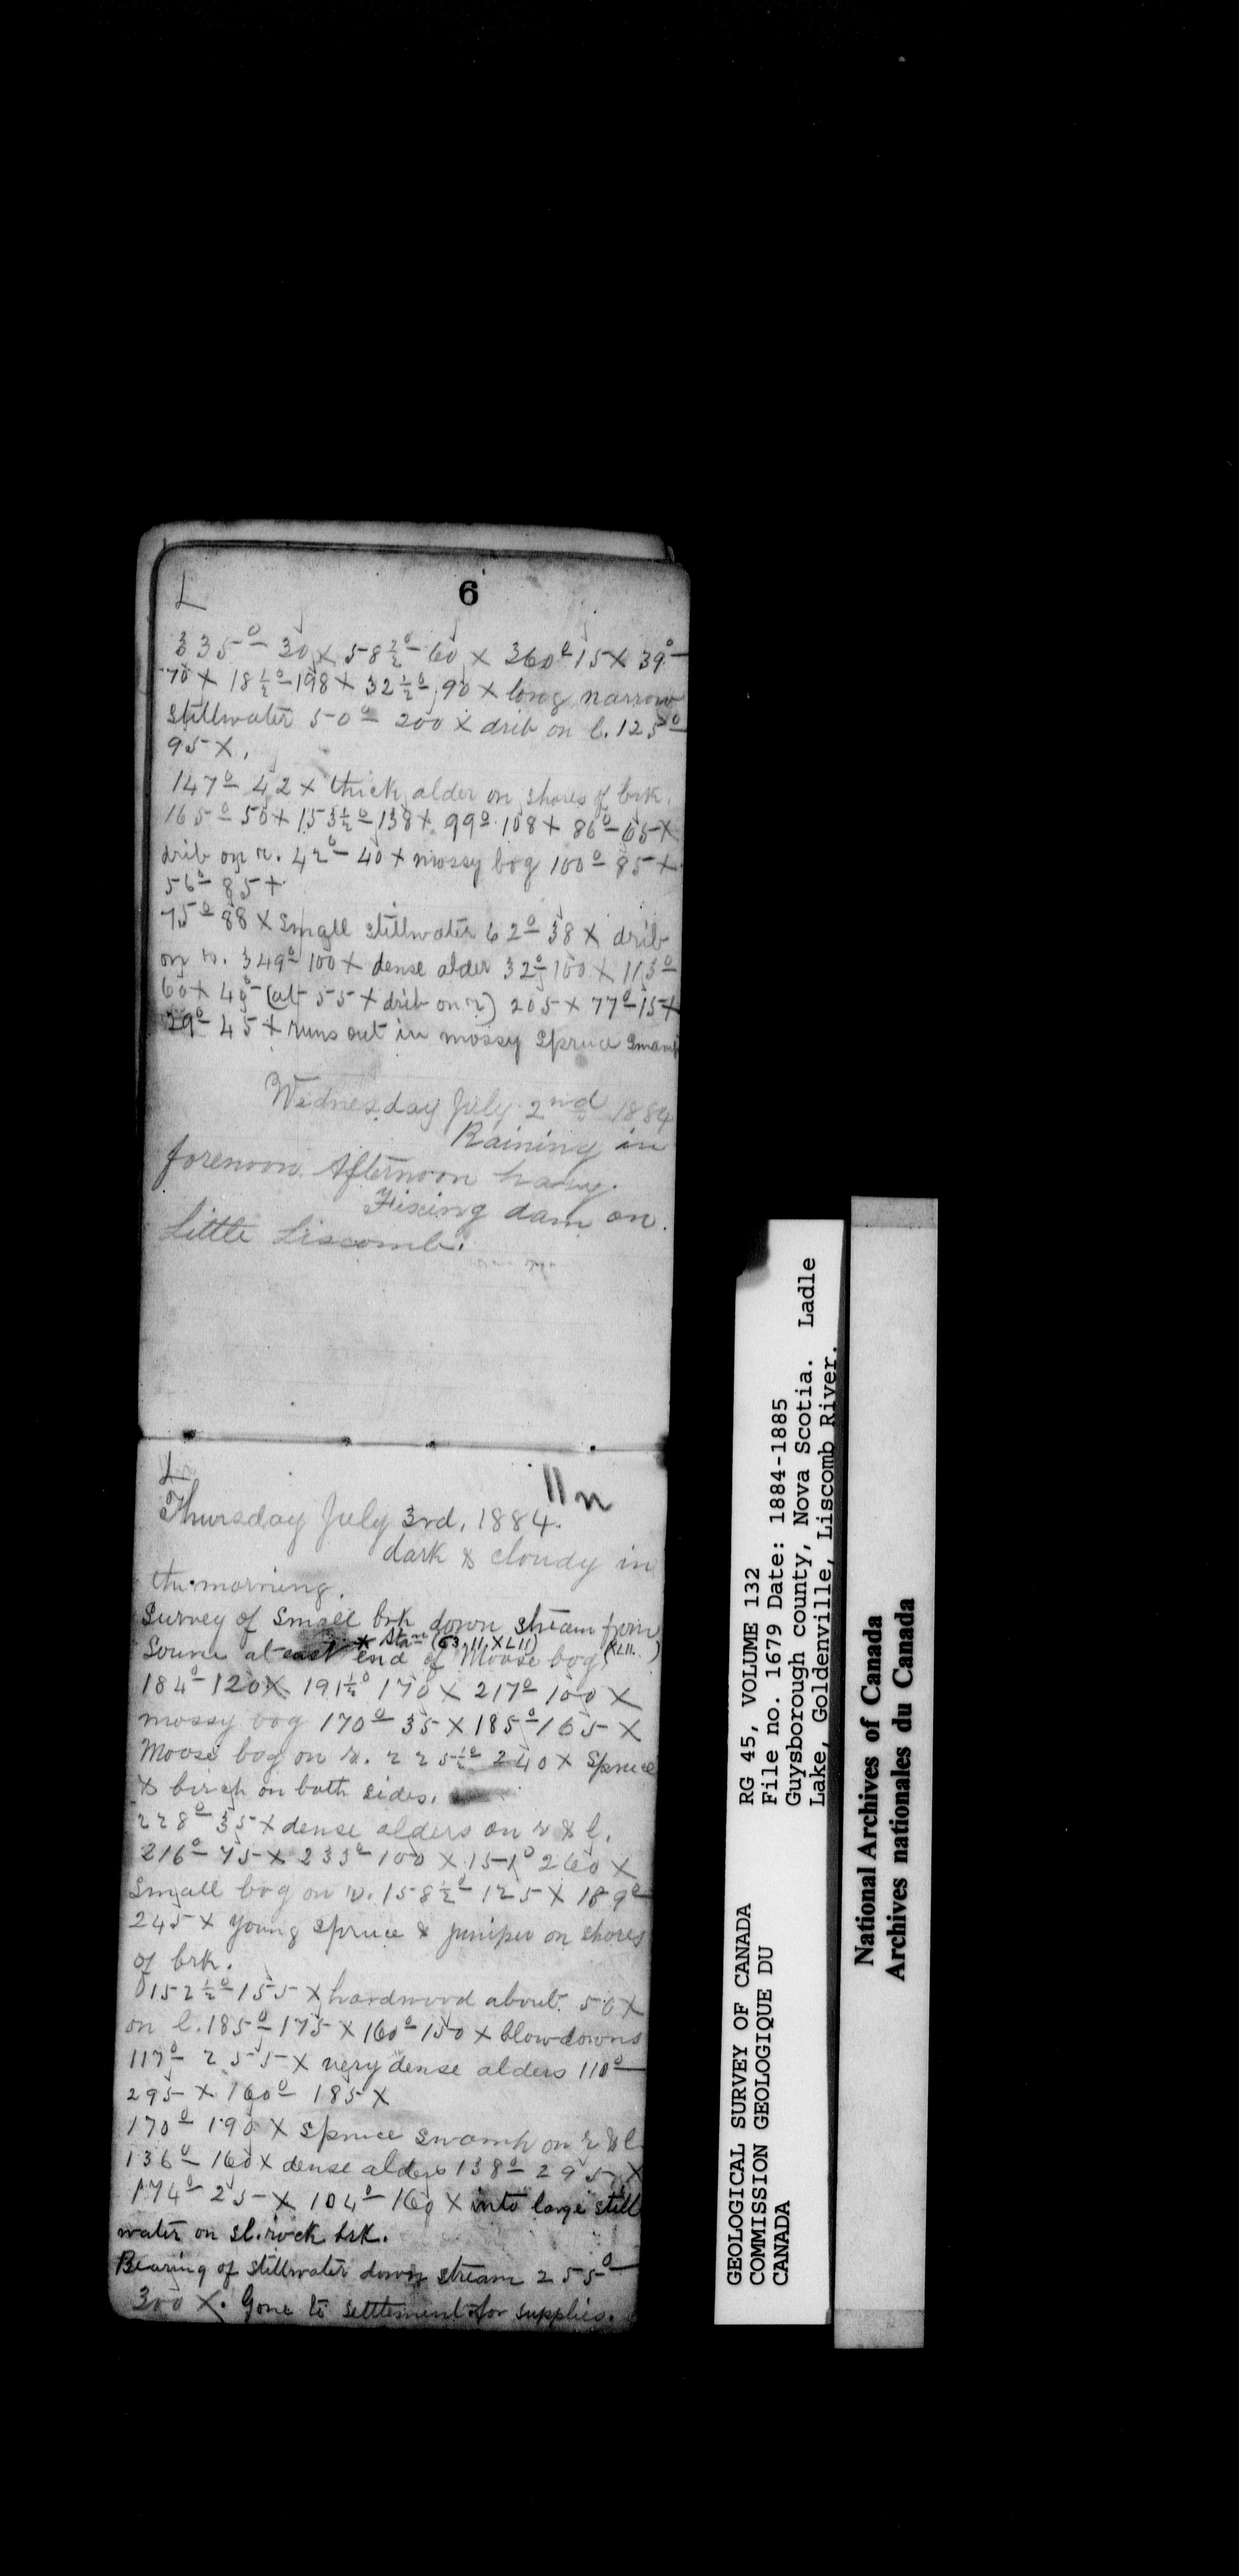 L 6
335°- 30 X 58½°- 60 X 360° 15 X 39°-
70 X 18½°- 198 X 32½°- 90 X long narrow
stillwater 50°- 200 X drib on l. 125°-
95 X.
147°- 42 X thick alder on shores of brk.
165°- 50 X 153½°- 138 X 99°- 108 X 86°- 65 X
drib on r. 42°- 40 X mossy bog 100°- 85 X
56°- 85 X
75°- 88 X small stillwater 62°- 38 X drib
on r. 349°- 100 X dense alder 32°- 100 X 113°-
60 X 49°- (at 55 X drib on r) 205 X 77°- 15 X
29°- 45 X runs out in mossy spruce swamp
Wednesday July 2nd 1884
Raining in
forenoon. Afternoon hazy.
Fixing dam on
Little Liscomb.
L 11n
Thursday July 3rd, 1884.
dark & cloudy in
the morning.
Survey of small brk down stream from
source at east end of Moose bog
184°- 120 X 191½° 170 X 217°- 100 X
mossy bog 170°- 35 X 185°- 165 X
Moose bog on r. 225½°- 240 X spruce
& birch on both sides.
228°- 35 X dense alders on r & l.
216°- 75 X 233°- 100 X 151° 260 X
small bog on r. 158½°- 125 X 189°-
245 X young spruce & juniper on shores
of brk.
152½°- 155 X hardwood about 50 X
on l. 185°- 175 X 160°- 150 X blowdowns
117°- 255 X very dense alders 110°-
295 X 160°- 185 X
170°- 190 X spruce swamp on r & l
136°- 160 X dense alders 138°- 295 X
174°- 25 X 104°- 160 X into large still
water on sl. rock brk.
Bearing of stillwater down stream 255°-
300 X. Gone to settlement for supplies.
GEOLOGICAL SURVEY OF CANADA
COMMISSION GEOLOGIQUE DU
CANADA
RG 45, VOLUME 132
File no. 1679 Date: 1884-1885
Guysborough county, Nova Scotia. Ladle
Lake, Goldenville, Liscomb River.
National Archives of Canada
Archives nationales du Canada